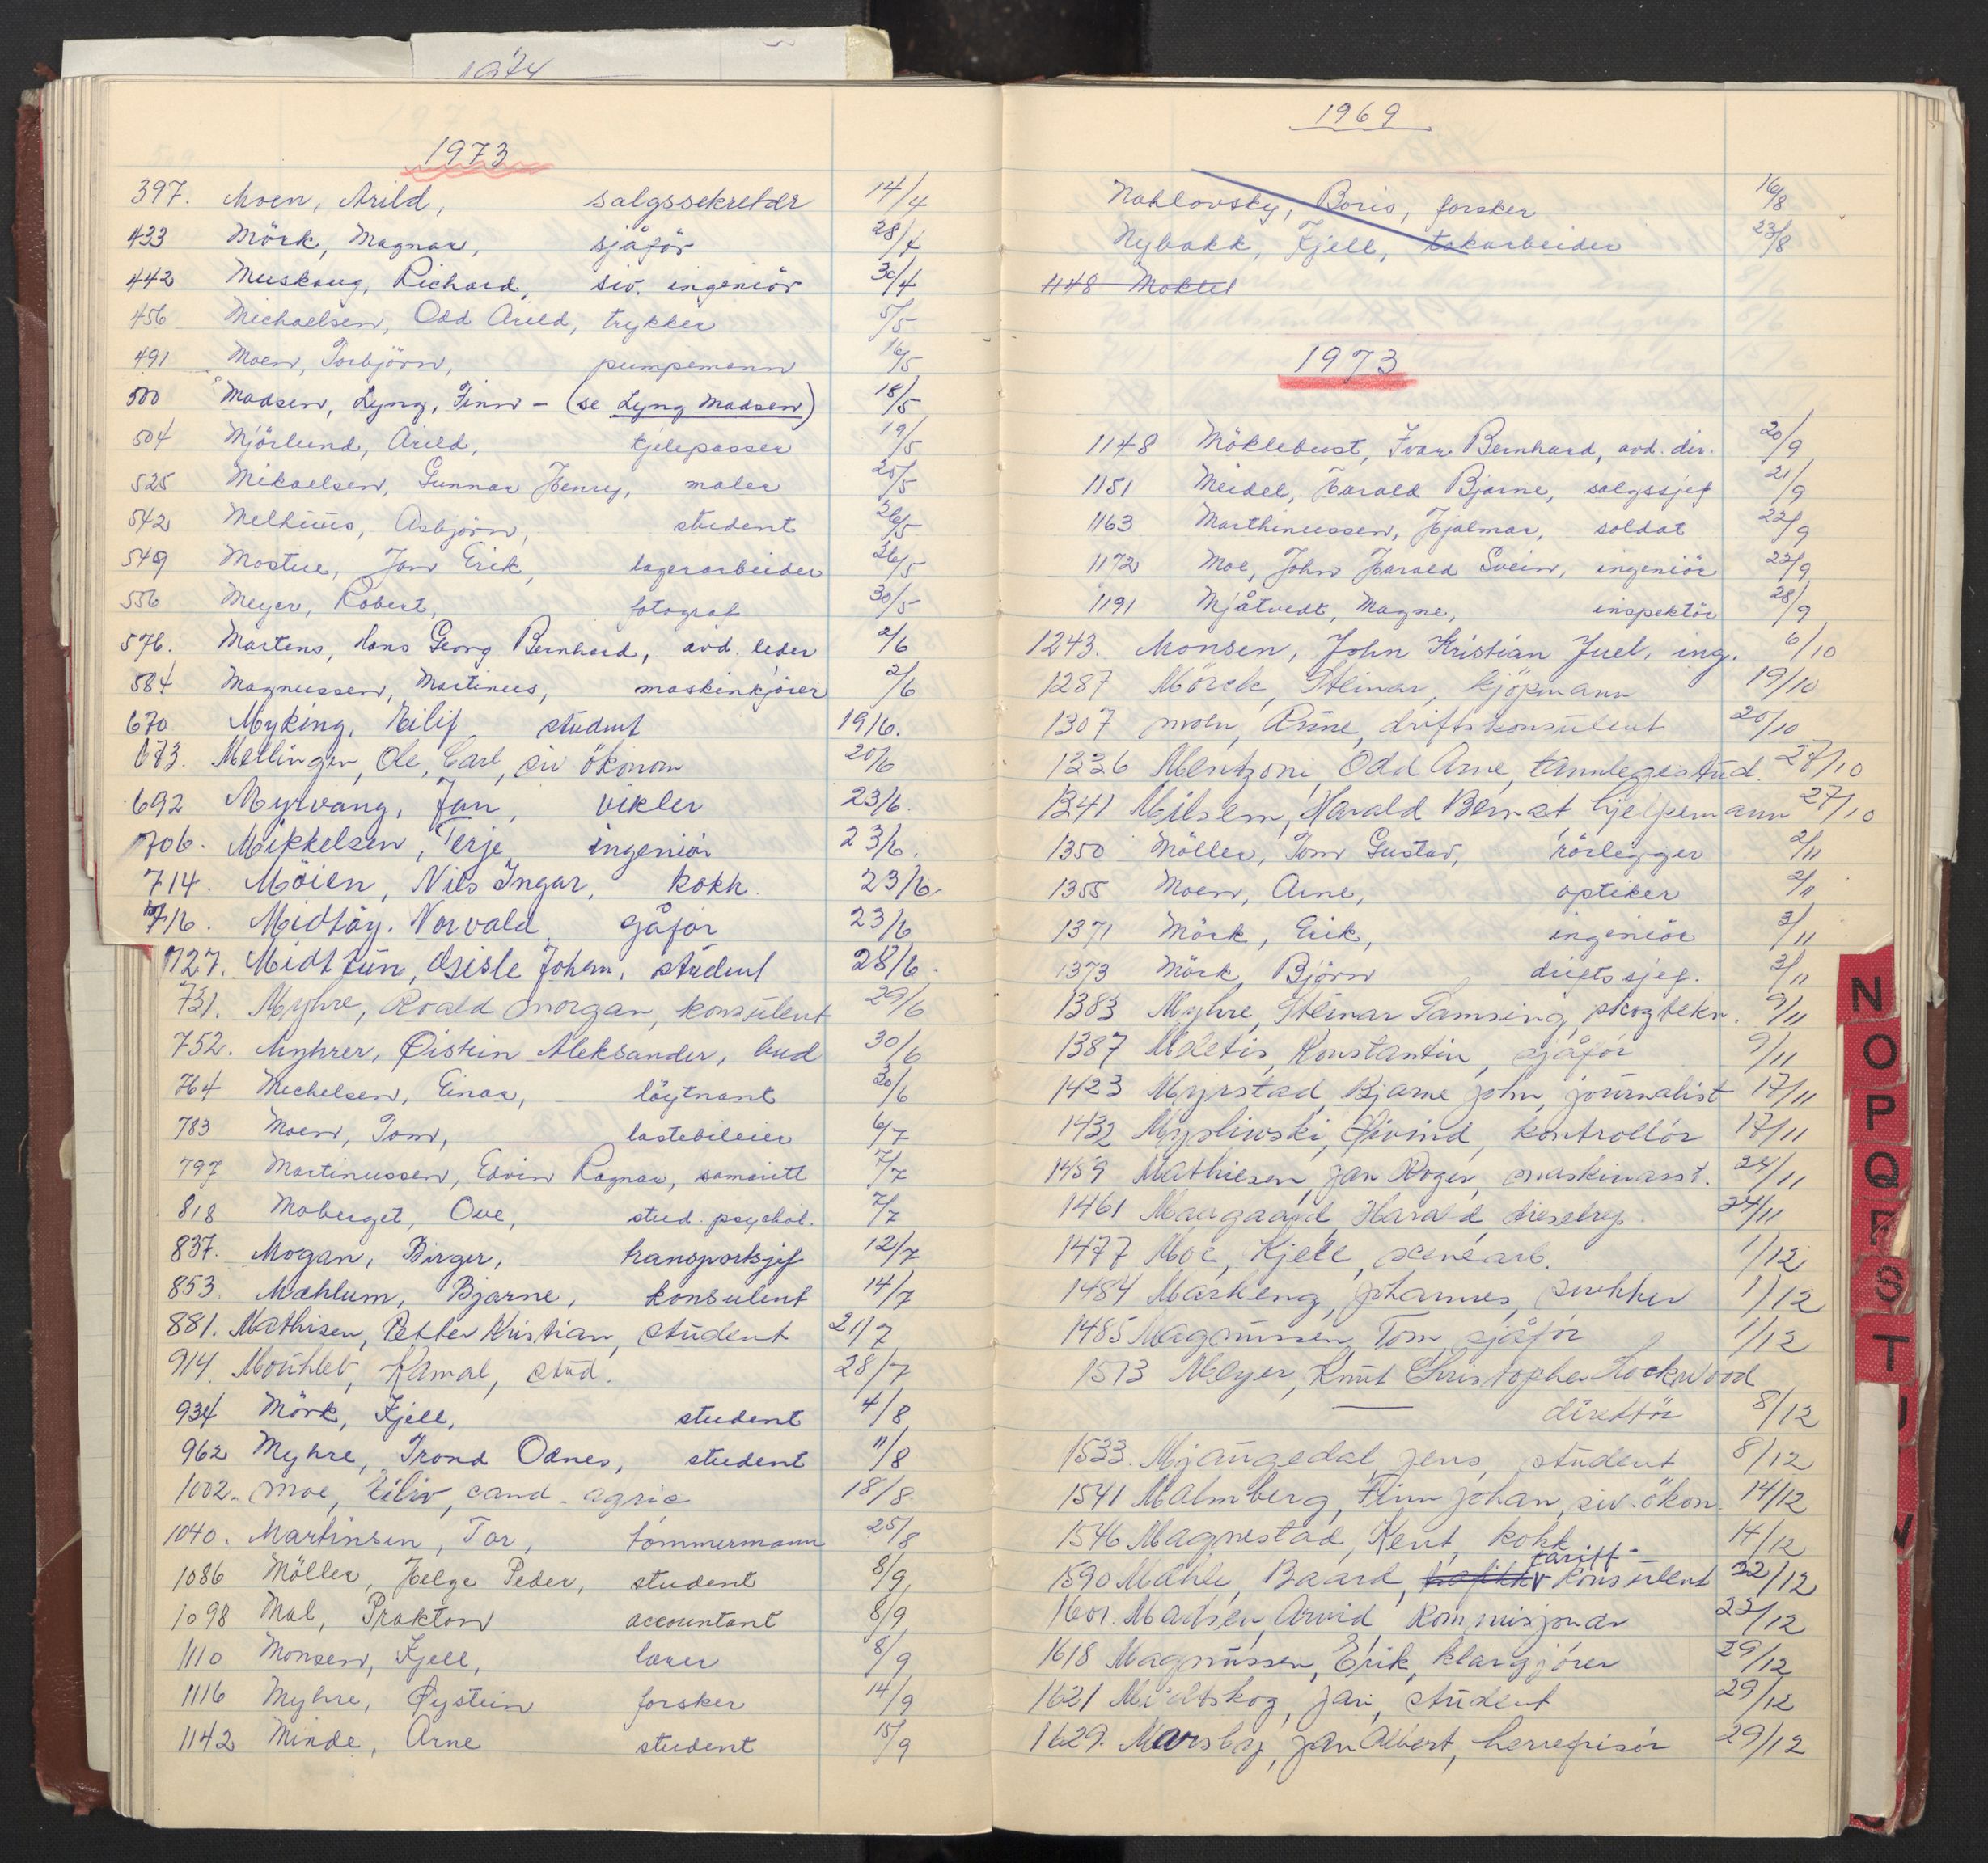 1974
1973
397. Moen, Arild, salgssekretær 14/4
433 Mörk, Magnar, sjåför 28/4
442 Muskaug, Richard, siv. ingeniör 30/4
456 Michaelsen, Odd Arild, trykker 5/5
491 Moen, Torbjörn, pumpemann 16/5
500 Madsen, Lyng, Finn – (se Lyng Madsen) 18/5
504 Mjörlund, Arild, kjelepasser 19/5
525 Mikaelsen, Gunnar Henry, maler 25/5
542 Melhüus, Asbjörn, student 26/5
549 Mostue, Jan Erik, lagerarbeider 26/5
556 Meyer, Robert, fotograf 30/5
576. Martens, Hans Georg Bernhard, avd. leder 2/6
584 Magnussen, Martinus, maskinkjörer 2/6
670 Myking, Eilif student 19/6.
673. Mellingen, Ole, Carl, siv ökonom 20/6
692 Myrvang, Jan, vikler 23/6.
706. Mikkelsen, Terje ingeniör 23/6.
714. Möien, Nils Ingar, kokk. 23/6.
716. Midtöy. Norvald sjåför 23/6
727. Midttün, Gisle Johan, student 28/6.
731. Myhre, Roald Morgan, konsulent 29/6
752. Myhrer, Øistein Aleksander, bud 30/6
764 Mechelsen, Einar, löytnant 30/6
783 Moen, Tom, lastebileier 6/7
797 Martinussen, Edvin Ragnar, samaritt 7/7
818 Moberget, Ove, stud. psychol. 7/7
837. Mogan, Birger, transportsjef 12/7
853. Mæhlum, Bjarne, konsulent 14/7
881. Mathisen, Petter Kristian, student 21/7
914. Mouhleb, Kamal, stud. 28/7
934 Mörk, Kjell, student 4/8
962 Myhre, Trond Odnes, student 11/8
1002. Moe, Eiliv, cand. agric 18/8.
1040. Martinsen, Tor, tömmermann 25/8
1086 Möller, Helge Peder, student 8/9
1098 Mal, Prakton accountant 8/9
1110 Monsen, Kjell, laker 8/9
1116 Myhre, Øystein forsker 14/9
1142 Minde, Arne student 15/9
1969
Nahlovsky, Boris, forsker 16/8
Nybakk, Kjell, tekarbeider 23/8
1148 Moklel
1973
1148 Möklebust, Ivar Bernhard, avd. dir. 20/9
1151 Meidel, Harald Bjarne, salgssjef 21/9
1163 Marthinussen, Hjalmar, soldat 22/9
1172 Moe, John Harald Svein, ingeniör 22/9
1191 Mjåtvedt, Magne, inspektör 28/9
1243. Monsen, John Kristian Juel, ing. 6/10
1287 Mörck, Steinar, kjöpmann 19/10
1307 Moen, Arne, driftskonsulent 20/10
1336 Mentzoni, Odd Arne, tannlegestud. 27/10
1341 Milsem, Harald Bernat hjelpemann 27/10
1350 Möller, Tom Gustav, rörlegger 2/11
1355 Moen, Arne, optiker 2/11
1371 Mörk, Erik, ingeniör 3/11
1373 Mörk, Björn driftssjef. 3/11
1383 Myhre, Steinar Samsing, skogtekn. 9/11
1387 Moletis, Konstantin, sjåför 9/11
1423 Myrstad, Bjarne John, journalist 17/11
1432 Mysliwski, Øivind, kontrollör 17/11
1459 Mathiesen, Jan Roger, maskinasst. 24/11
1461 Maagaard, Harald, dieselrep. 24/11
1477 Moe, Kjell, scenearb. 1/12
1484 Markeng, Johannes, snekker 1/12
1485 Magnussen, Tom, sjåför 1/12
1513 Meyer, Knut Christopher Lockwood
— direktör 8/12
1533. Mjaugedal, Jens, student 8/12
1541 Malmberg, Finn Johan, siv. ökon. 14/12
1546 Magnestad, Kent, kokk 14/12
tariff-
1590 Mæhle, Baard, konsulent 22/12
1601. Madsen, Arvid, kommisjonær 22/12
1618 Magnussen, Erik, klargjörer 29/12
1621 Midtskog, Jan, student 29/12
1629. Marsby, Jan Albert, herrefrisör 29/12
N
O
P
Q
R
S
T
U
V